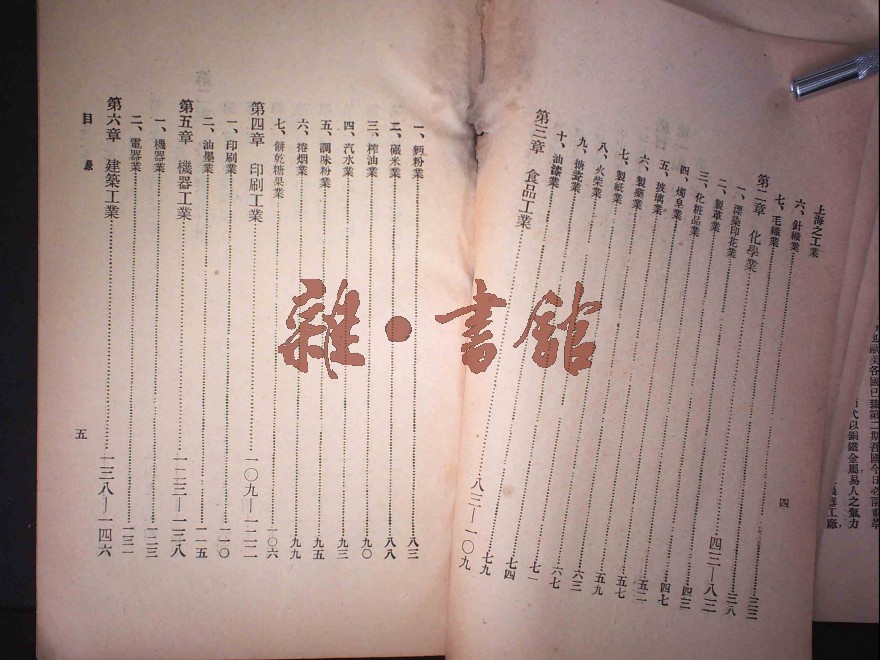 歐美各國已致第二期吾國今日必需
代以鋼鐵金屬易人之氣力
機器工廠，
上海之工業
四
六、針織業……三三
七、毛織業……三八
第二章 化學業……四三—八三
一、漂染印花業……四三
二、製革業……四七
三、化粧品業……五二
四、燭皂業……五七
五、玻璃業……五九
六、製藥業……六三
七、製紙業……六七
八、火柴業……七一
九、搪瓷業……七四
十、油漆業……七九
第三章 食品工業……八三—一〇九
一、麪粉業……八三
二、碾米業……八八
三、榨油業……九〇
四、汽水業……九三
五、調味粉業……九五
六、捲烟業……九九
七、餅乾糖果業……一〇六
第四章 印刷工業……一〇九—一二二
一、印刷業……一一〇
二、油墨業……一一五
第五章 機器工業……一二三—一三八
一、機器業……一二三
二、電器業……一三一
第六章 建築工業……一三八—一四六
目錄
五
雜·書館